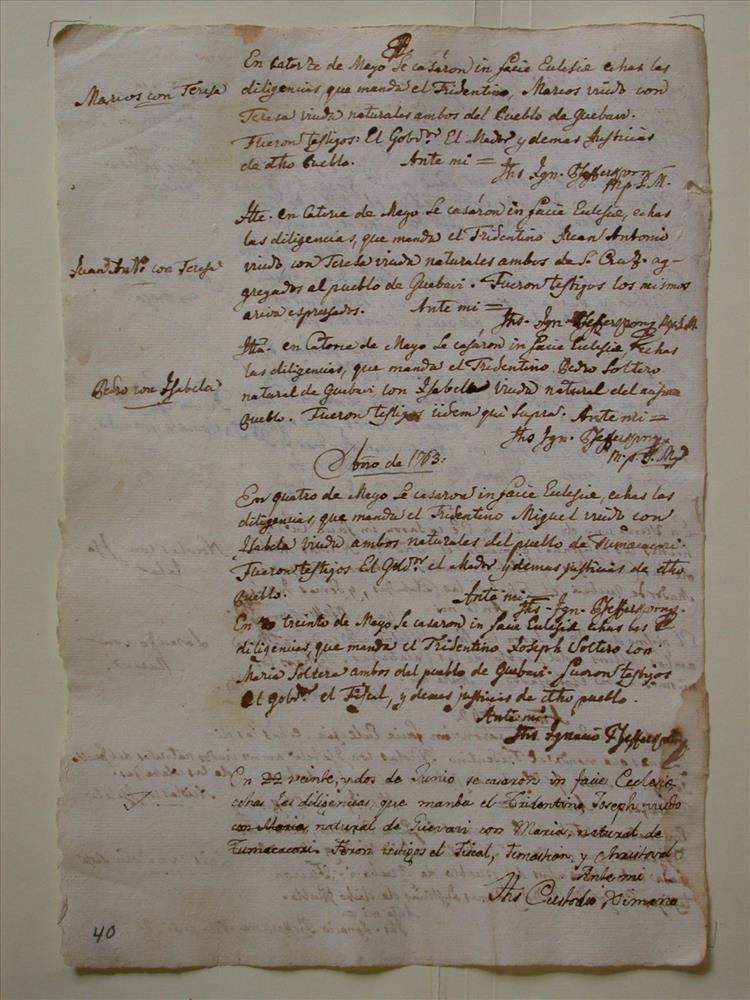 En Catorze de Mayo Se casáron in facie Eclesie echas las
Marcos con Teresa
diligencias, que manda el Tridentino, Marcos viudo con
Teresa viuda naturales ambos del Pueblo de Guebavi.
Fueron testigos: El Gobor. El Mador y demas Justicias
de dho Pueblo. Ante mi =
Jhs Ign. Pfefferkorn
Mp.S.M.
Itt. en Catorce de Mayo Se casáron in facie Eclesie, echas
las diligencias, que manda el Tridentino Juan Antonio
Juan Anto. con Teresa
viudo con Teresa viuda naturales ambos de S. Cruz ag-
gregados al pueblo de Guebavi. Fueron testigos los mismos
ariva espressados. Ante mi =
Jhs. Ign. Pfefferkorn Mp.S.M.
Itt. en Catorce de Mayo Se casáron in facie Eclesie, echas
las diligencias, que manda el Tridentino Pedro Soltero
Pedro con Isabela
natural de Guebavi con Isabela viuda natural del
Pueblo. Fueron testigos iidem qui Supra. Ante mi =
Jhs Ign. Pfefferkorn
m.p.S.M.
Año de 1763:
En quatro de Mayo Se casaron in facie Eclesie, echas las
diligencias, que manda el Tridentino Miguel viudo con
Isabela viuda ambos naturales del pueblo de Tumacacori.
Fueron testijos El Gobor. el Mador y demas justicias de dho
Pueblo. Ante mi
Jhs. Ign. Pfefferkorn.
En treinto de Mayo Se casaron in facie Eclesie echas las
diligencias, que manda el Tridentino Joseph Soltero con
Maria Soltera ambos del pueblo de Guebavi. fueron testijos
el Gobor. el Fiscal, y demas justicias de dho pueblo.
Ante mi.
Jhs. Ignacio Pfefferkorn
En 22 veinte, y dos de Junio se casaron in facie Ecclesie
echas las diligencias, que manda el Tridentino Joseph viudo
con Maria, natural de Guevavi con Maria, natural de
Tumacacori. Feron testigos el Fiscal, y Christoval
Ante mi
Jhs Custodio Ximeno
40